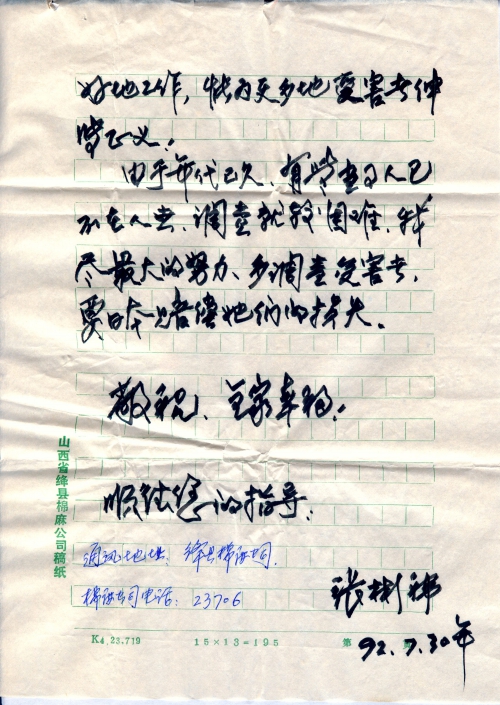 好地工作，能为更多地受害者伸
张正义！
由于年代已久、有些当事人已
不在人世、调查就较困难、我
尽最大的努力、多调查受害者、
要日本赔偿她们的损失、
敬祝、全家幸福！
顺致您的指导！
通讯地址：绛县棉麻公司.
棉麻公司电话：23706
张
92.7.30年
山西省绛县棉麻公司稿纸
K4.23.719
15×13=195
第